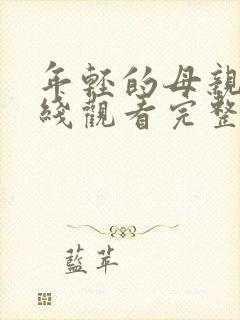 年輕的母親
綫觀看完整
藍苹